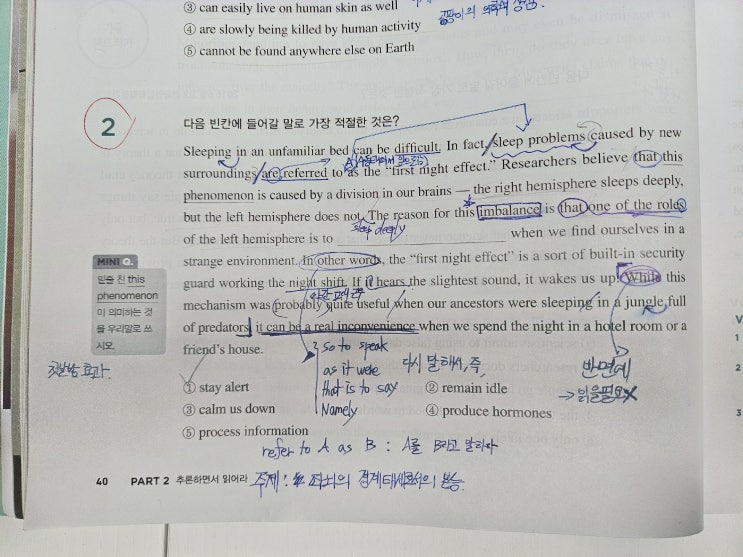 ③ can easily live on human skin as well
④ are slowly being killed by human activity
⑤ cannot be found anywhere else on Earth
2
다음 빈칸에 들어갈 말로 가장 적절한 것은?
Sleeping in an unfamiliar bed can be difficult. In fact, sleep problems caused by new
surroundings are referred to as the “first night effect.” Researchers believe that this
phenomenon is caused by a division in our brains — the right hemisphere sleeps deeply,
but the left hemisphere does not. The reason for this imbalance is that one of the roles
sleep deeply
of the left hemisphere is to ____________ when we find ourselves in a
strange environment. In other words, the “first night effect” is a sort of built-in security
guard working the night shift. If it hears the slightest sound, it wakes us up! While this
mechanism was probably quite useful when our ancestors were sleeping in a jungle full
of predators, it can be a real inconvenience when we spend the night in a hotel room or a
friend's house.
MINI Q.
밑줄 친 this
phenomenon
이 의미하는 것
을 우리말로 쓰
시오.
첫날밤 효과.
so to speak
as it were
that is to say
Namely
다시 말하서, 즉,
반면에
① stay alert
② remain idle
③ calm us down
④ produce hormones
⑤ process information
refer to A as B : A를 B라고 말하다
40 PART 2 추론하면서 읽어라
주제 :
V
1
2
3